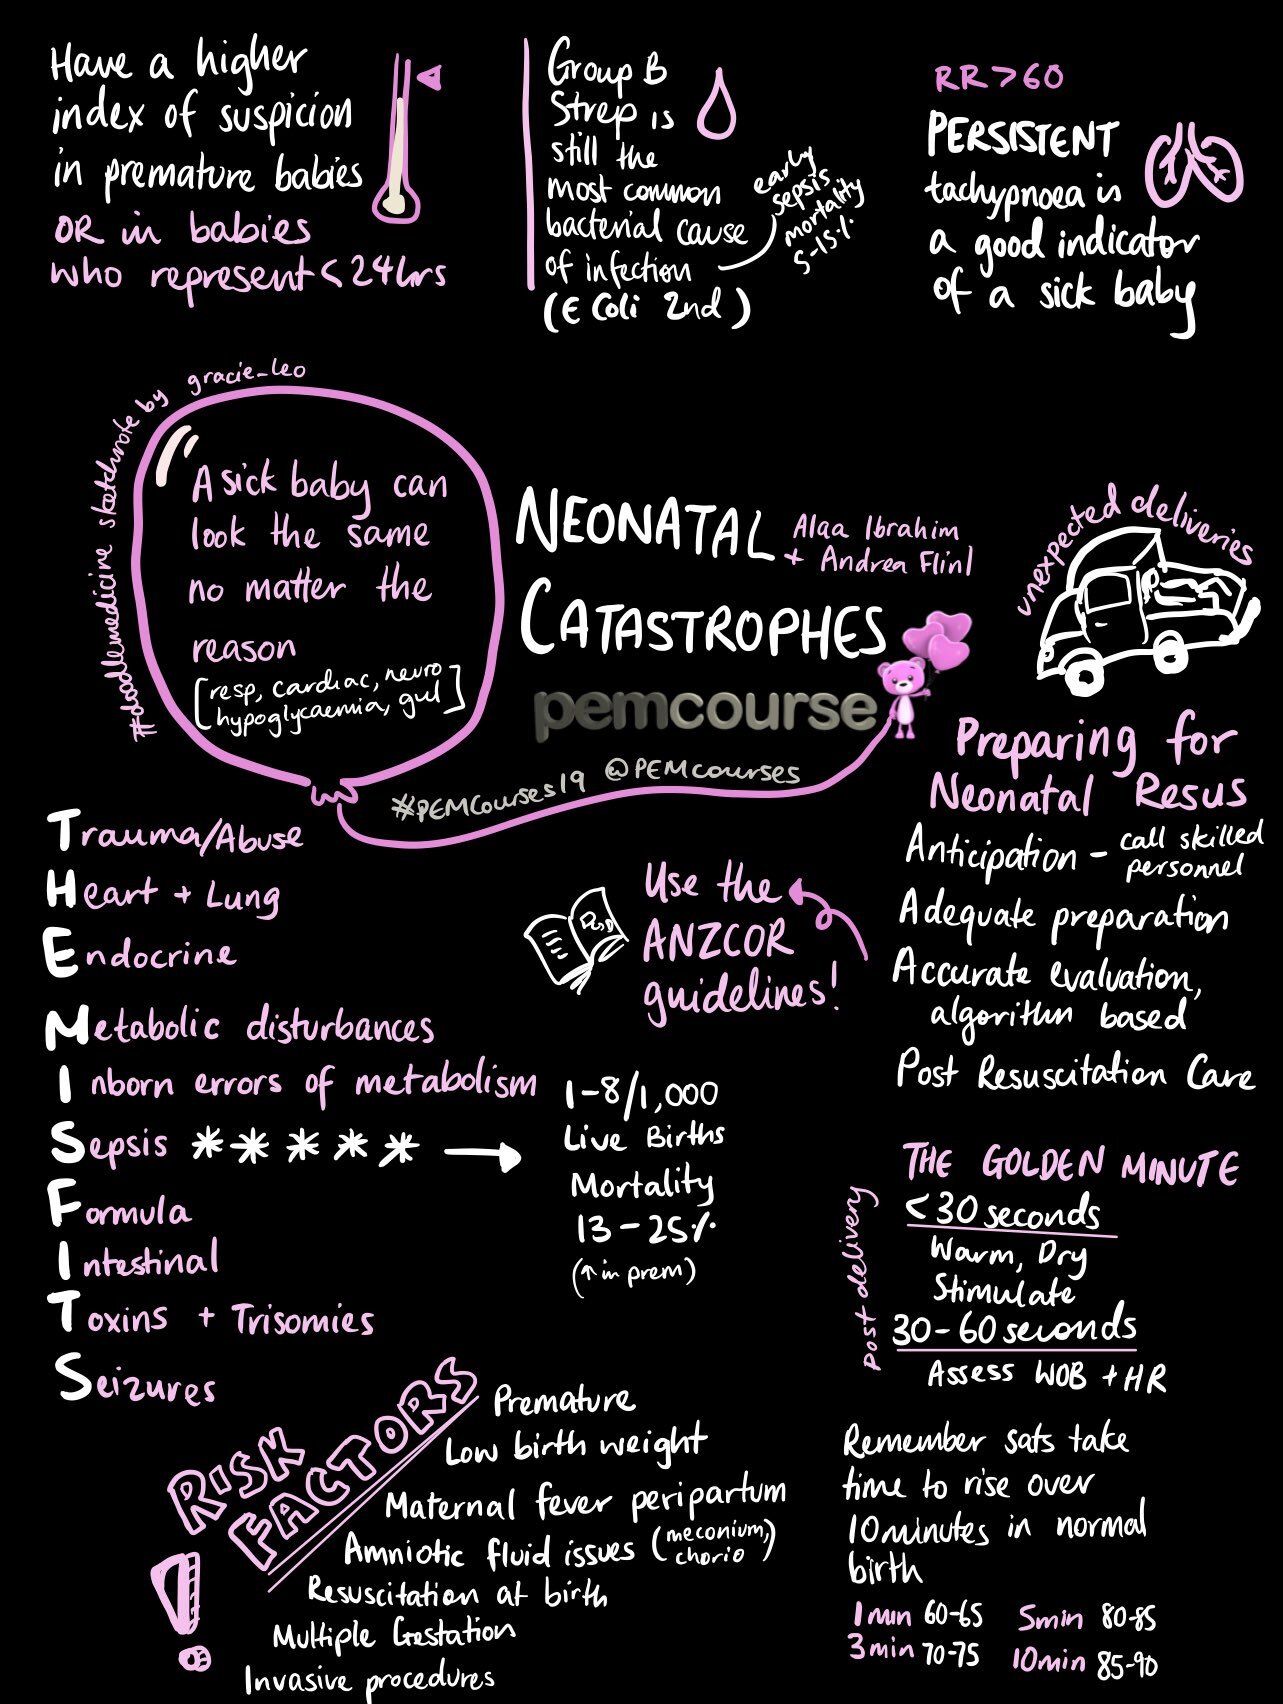 Have a higher
index of suspicion
in premature babies
OR in babies
who represent < 24hrs
Group B
Strep is
still the
most common
bacterial cause
of infection
(E Coli 2nd)
early
sepsis
mortality
5-15%
RR > 60
PERSISTENT
tachypnoea is
a good indicator
of a sick baby
#doodlemedicine sketchnote by gracie_leo
A sick baby can
look the same
no matter the
reason
[resp, cardiac, neuro
hypoglycaemia, gut]
NEONATAL
CATASTROPHES
Alaa Ibrahim
+ Andrea Flint
pemcourse
#PEMCourses19 @PEMcourses
unexpected deliveries
Trauma/Abuse
Heart + Lung
Endocrine
Metabolic disturbances
Inborn errors of metabolism
Sepsis * * * * *
Formula
Intestinal
Toxins + Trisomies
Seizures
1-8/1,000
Live Births
Mortality
13-25%
(↑ in prem)
Use the
ANZCOR
guidelines!
Preparing for
Neonatal Resus
Anticipation - call skilled
personnel
Adequate preparation
Accurate evaluation,
algorithm based
Post Resuscitation Care
THE GOLDEN MINUTE
post delivery
< 30 seconds
Warm, Dry
Stimulate
30-60 seconds
Assess WOB + HR
Remember sats take
time to rise over
10 minutes in normal
birth
1 min 60-65 5 min 80-85
3 min 70-75 10 min 85-90
RISK
FACTORS
Premature
Low birth weight
Maternal fever peripartum
Amniotic fluid issues (meconium,
chorio)
Resuscitation at birth
Multiple Gestation
Invasive procedures